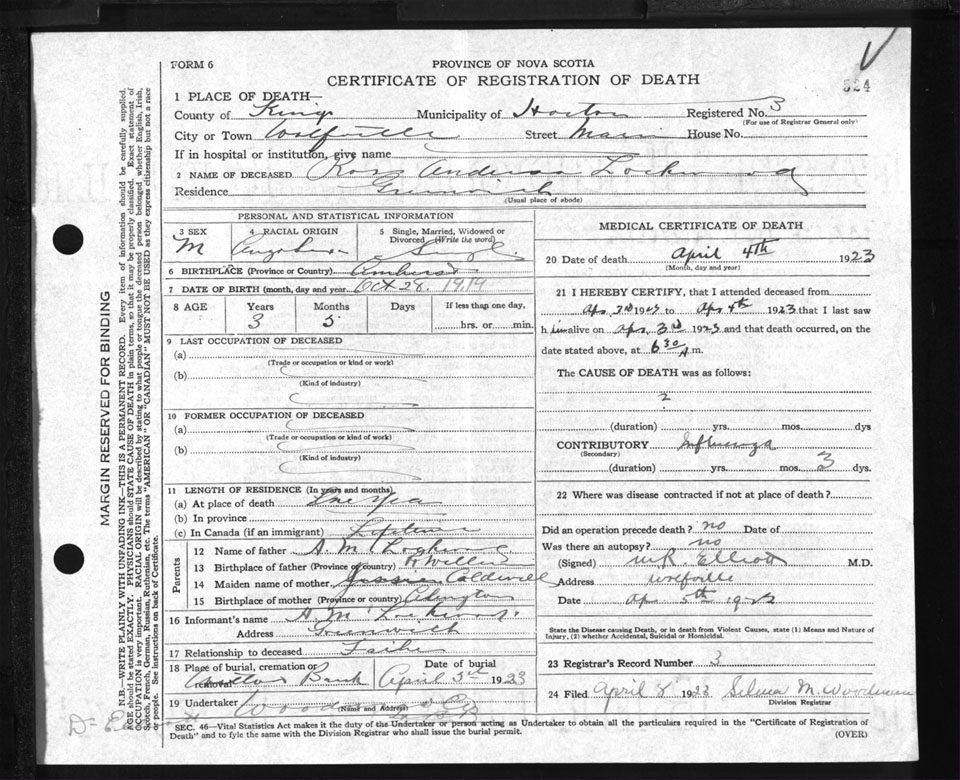 FORM 6
PROVINCE OF NOVA SCOTIA
CERTIFICATE OF REGISTRATION OF DEATH
524
1 PLACE OF DEATH—
County of Kings Municipality of Horton Registered No. 3
(For use of Registrar General only)
City or Town Wolfville Street Main House No.
If in hospital or institution, give name
2 NAME OF DECEASED Ross Anderson Lockwood
Residence Greenwich
(Usual place of abode)
PERSONAL AND STATISTICAL INFORMATION
3 SEX 4 RACIAL ORIGIN 5 Single, Married, Widowed or Divorced (Write the word)
M Single
6 BIRTHPLACE (Province or Country) Amherst
7 DATE OF BIRTH (month, day and year) Oct 28. 1919
8 AGE Years Months Days If less than one day,
3 5 hrs. or min.
9 LAST OCCUPATION OF DECEASED
(a)
(Trade or occupation or kind or work)
(b)
(Kind of industry)
10 FORMER OCCUPATION OF DECEASED
(a)
(Trade or occupation or kind or work)
(b)
(Kind of industry)
11 LENGTH OF RESIDENCE (In years and months)
(a) At place of death One Year
(b) In province
(c) In Canada (if an immigrant) Lifetime
Parents
12 Name of father A. M. Lockwood
13 Birthplace of father (Province or country)
14 Maiden name of mother Caldwell
15 Birthplace of mother (Province or country)
16 Informant's name A. M. Lockwood
Address Greenwich
17 Relationship to deceased Father
18 Place of burial, cremation or removal Date of burial
Bank April 5th 1923
19 Undertaker Woodman & Co
(Name and Address)
MEDICAL CERTIFICATE OF DEATH
20 Date of death April 4th 1923
(Month, day and year)
21 I HEREBY CERTIFY, that I attended deceased from
Apr 3rd 1923 to Apr 4th 1923 that I last saw
h im alive on Apr. 3rd 1923 and that death occurred, on the
date stated above, at 6 30 A m.
The CAUSE OF DEATH was as follows:
?
(duration) yrs. mos. dys
CONTRIBUTORY Influenza
(Secondary)
(duration) yrs. mos. 3 dys.
22 Where was disease contracted if not at place of death?
Did an operation precede death? no Date of
Was there an autopsy? no
(Signed) M.R. Elliott M.D.
Address Wolfville
Date Apr 5th 1923
State the Disease causing Death, or in death from Violent Causes, state (1) Means and Nature of
Injury, (2) whether Accidental, Suicidal or Homicidal.
23 Registrar's Record Number 3
24 Filed April 8 1923 Selma M. Woodman
Division Registrar
SEC. 46—Vital Statistics Act makes it the duty of the Undertaker or person acting as Undertaker to obtain all the particulars required in the "Certificate of Registration of
Death" and to fyle the same with the Division Registrar who shall issue the burial permit.
(OVER)
MARGIN RESERVED FOR BINDING
N.B.—WRITE PLAINLY WITH UNFADING INK—THIS IS A PERMANENT RECORD. Every item of information should be carefully supplied.
AGE should be stated EXACTLY. PHYSICIANS should STATE CAUSE OF DEATH in plain terms, so that it may be properly classified. Exact statement of
OCCUPATION is very important. RACIAL ORIGIN will be described by stating to what people or tongue the deceased person belonged, whether English, Irish,
Scotch, French, German, Russian, Ruthenian, etc. The terms "AMERICAN" or "CANADIAN" MUST NOT BE USED as they express citizenship but not a race
or people. See instructions on back of Certificate.